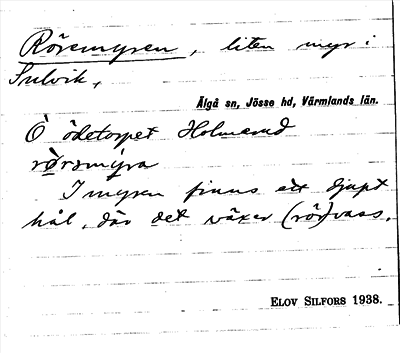 Rörsmyren, liten myr i
Sulvik,
Älgå sn, Jösse hd, Värmlands län.
Ö ödetorpet Holmerud
rörsmýra
I myren finns ett djupt
hål, där det växer (rör)vass.
ELOV SILFORS 1938.